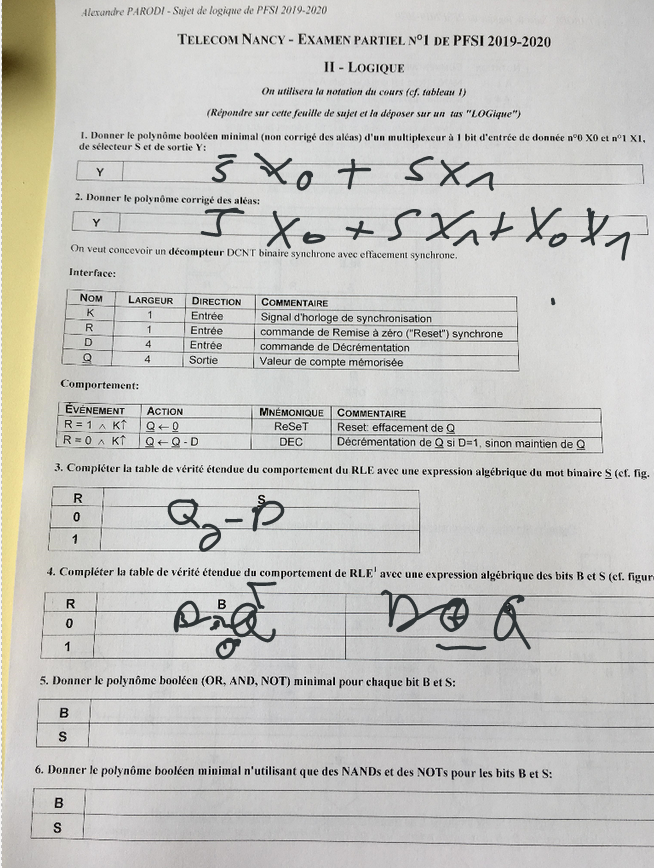 Alexandre PARODI - Sujet de logique de PFSI 2019-2020
TELECOM NANCY - EXAMEN PARTIEL N°1 DE PFSI 2019-2020
II - LOGIQUE
On utilisera la notation du cours (cf. tableau 1)
(Répondre sur cette feuille de sujet et la déposer sur un tas "LOGique")
1. Donner le polynôme booléen minimal (non corrigé des aléas) d'un multiplexeur à 1 bit d'entrée de donnée n°0 X0 et n°1 X1,
de sélecteur S et de sortie Y:
Y S̅ X0 + S X1
2. Donner le polynôme corrigé des aléas:
Y S̅ X0 + S X1 + X0 X1
On veut concevoir un décompteur DCNT binaire synchrone avec effacement synchrone.
Interface:
NOM LARGEUR DIRECTION COMMENTAIRE
K 1 Entrée Signal d'horloge de synchronisation
R 1 Entrée commande de Remise à zéro ("Reset") synchrone
D 4 Entrée commande de Décrémentation
Q 4 Sortie Valeur de compte mémorisée
Comportement:
ÉVÉNEMENT ACTION MNÉMONIQUE COMMENTAIRE
R = 1 ∧ K↑ Q ← 0 ReSeT Reset: effacement de Q
R = 0 ∧ K↑ Q ← Q - D DEC Décrémentation de Q si D=1, sinon maintien de Q
3. Compléter la table de vérité étendue du comportement du RLE avec une expression algébrique du mot binaire S (cf. fig.
R S
0 Q - D
1 0
4. Compléter la table de vérité étendue du comportement de RLE¹ avec une expression algébrique des bits B et S (cf. figur
R B
0 D ⊕ Q
1 0
5. Donner le polynôme booléen (OR, AND, NOT) minimal pour chaque bit B et S:
B
S
6. Donner le polynôme booléen minimal n'utilisant que des NANDs et des NOTs pour les bits B et S:
B
S